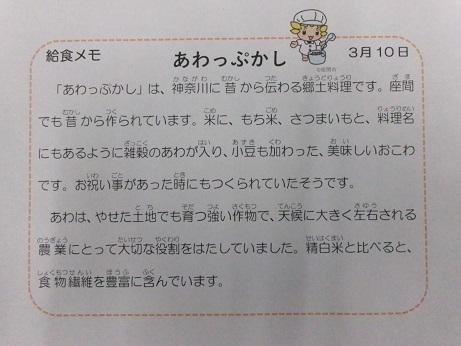 給食メモ　あわっぷかし　3月10日
「あわっぷかし」は、神奈川に昔から伝わる郷土料理です。座間
でも昔から作られています。米に、もち米、さつまいもと、料理名
にもあるように雑穀のあわが入り、小豆も加わった、美味しいおこわ
です。お祝い事があった時にもつくられていたそうです。
　あわは、やせた土地でも育つ強い作物で、天候に大きく左右される
農業にとって大切な役割をはたしていました。精白米と比べると、
食物繊維を豊富に含んでいます。